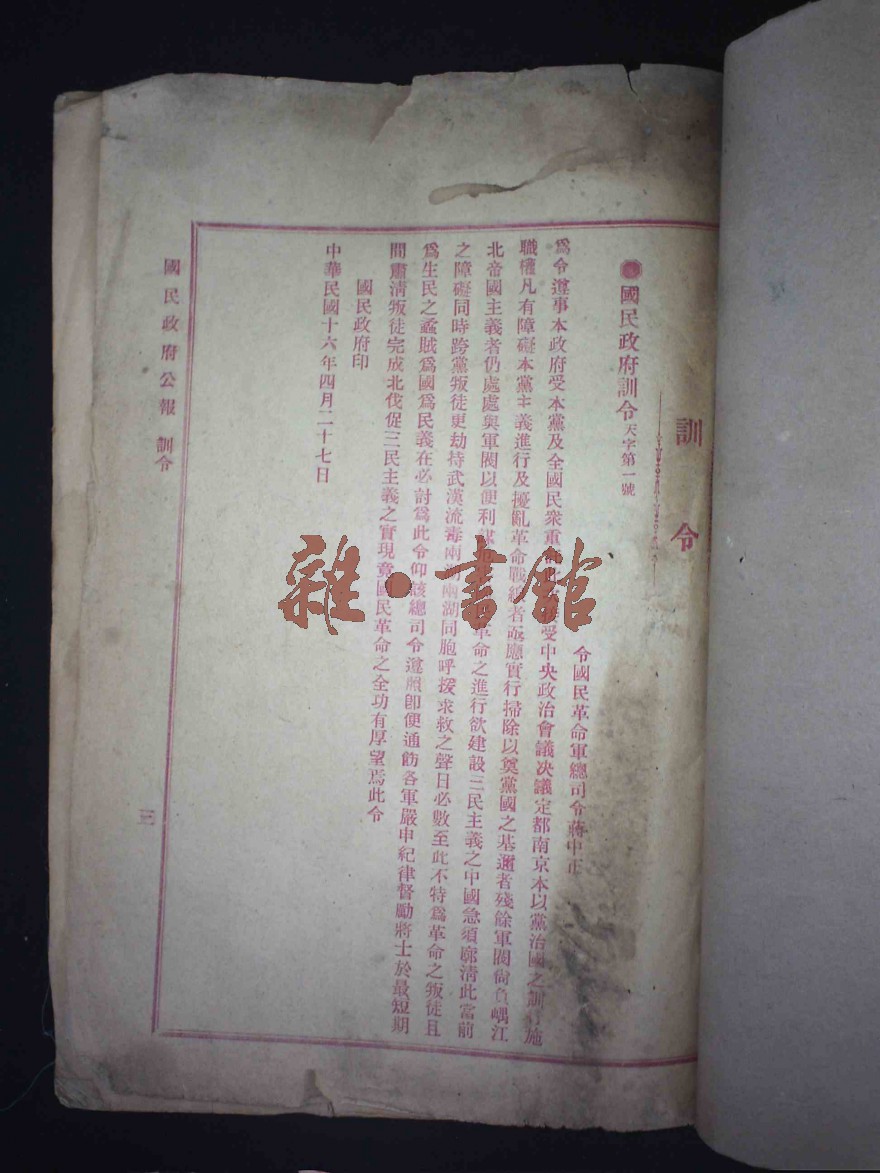 訓令
●國民政府訓令天字第一號
令國民革命軍總司令蔣中正
爲令遵事本政府受本黨及全國民衆重受中央政治會議决議定都南京本以黨治國之訓施
職權凡有障礙本黨主義進行及擾亂革命戰線者亟應實行掃除以奠黨國之基邇者殘餘軍閥尙負嵎江
北帝國主義者仍處處與軍閥以便利謀革命之進行欲建設三民主義之中國急須廓淸此當前
之障礙同時跨黨叛徒更劫持武漢流毒兩湖兩湖同胞呼援求救之聲日必數至此不特爲革命之叛徒且
爲生民之蟊賊爲國爲民義在必討爲此令仰該總司令遵照卽便通飭各軍嚴申紀律督勵將士於最短期
間肅淸叛徒完成北伐促三民主義之實現竟國民革命之全功有厚望焉此令
國民政府印
中華民國十六年四月二十七日
國民政府公報 訓令
三
雜·書館